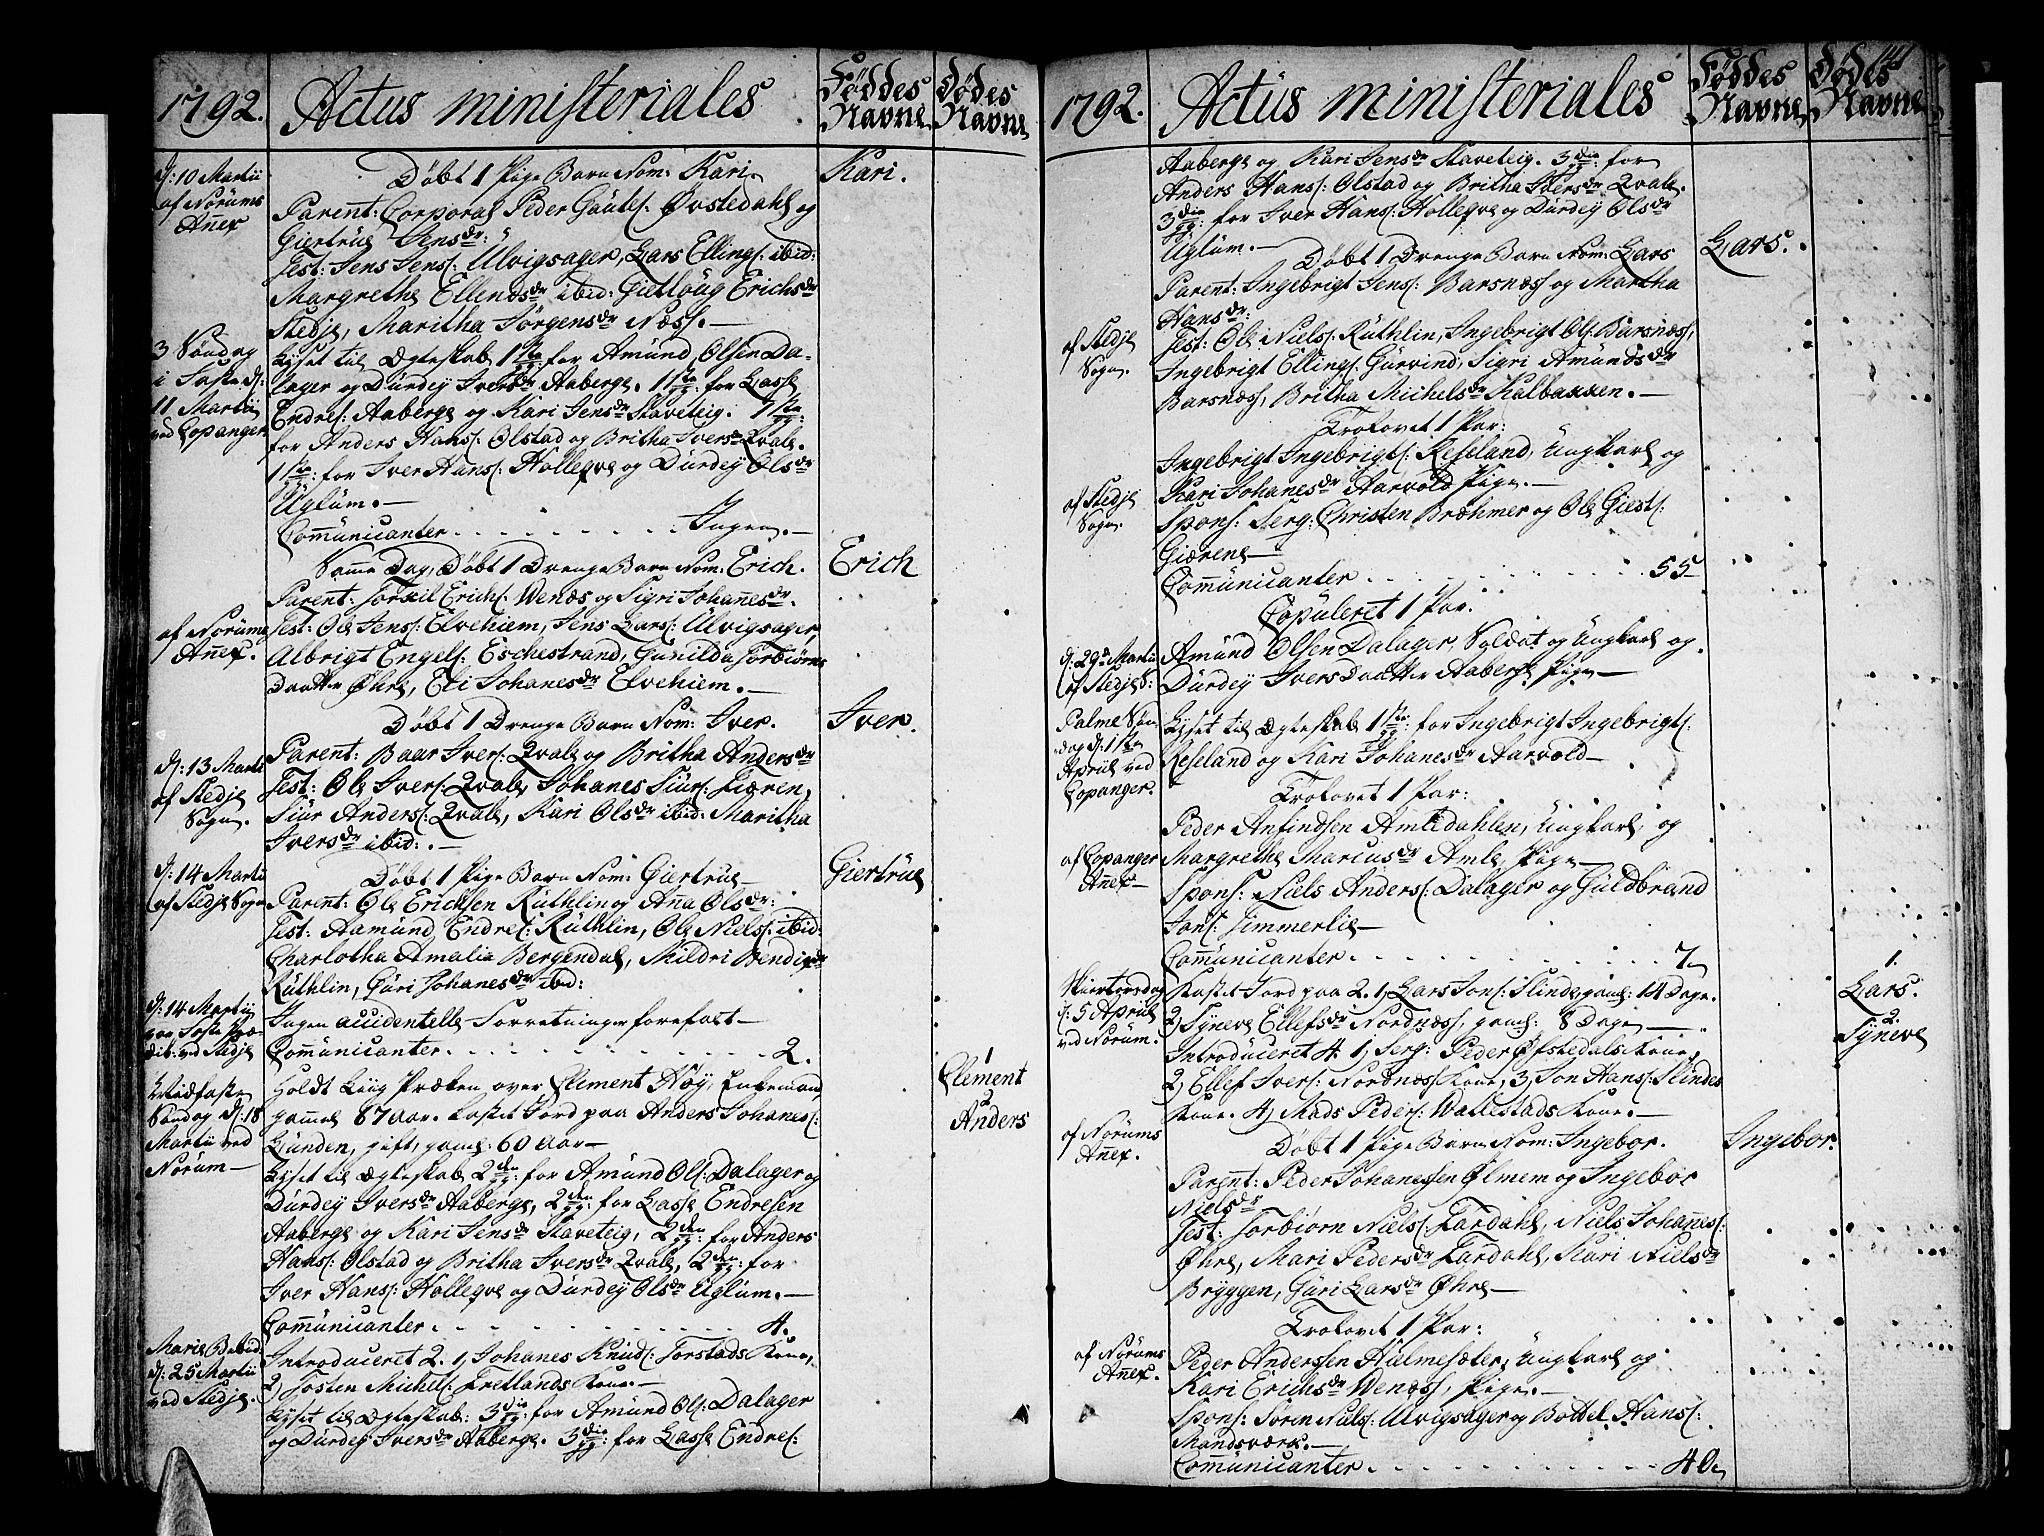 1792. Actus ministeriales Føddes Navne Dødes Navne
d: 10 Martii af Norums Añex
Døbt 1 Pige Barn Nom: Kari. Kari.
Parent: Corporal Peder Gautes: Øvstedahl og
Giertrue Jensdr:
Test: Jens Jens: Ulvigsager, Lars Ellings: ibid:
Margrethe Ellendsdr ibid: Gietloug Erichsdr
Stedje, Maritha Jørgensdr Næss.—
3 Søndag i Faste d: 11 Martii ved Copanger
Lyset til Ægteskab 1ste gg: for Amund Olsen Da-
lager og Durdey Iversdr Aaberge. 1ste gg: for Lasse
Endres: Aaberge og Kari Jensdr Staveteig. 1ste gg:
for Anders Hans: Olstad og Britha Iversdr Qvale.
1ste gg: for Iver Hans: Holleqve og Durdey Olsdr
Uglum.—
Com̃unicanter . . . . . . . Ingen.—
Samme Dag, Døbt 1 Drenge Barn Nom: Erich. Erich
af Norums Añex.
Parent: Torkil Erichs: Wenæs og Sigri Johañesdr.
Test: Ole Jens: Elvehiem, Jens Lars: Ulvigsager,
Albrigt Engels: Eschestrand, Gunilda Torbiørns
Daatter Øhre, Eli Johanesdr Elvehiem.—
Døbt 1 Drenge Barn Nom: Iver. Iver.
d: 13 Martii af Stedje Sogn.
Parent: Baar Ivers: Qvale og Britha Andersdr
Test: Ole Ivers: Qvale, Johanes Siurs: Fiæren,
Siur Anders: Qvale, Kari Olsdr ibid: Maritha
Iversdr ibid:.—
d: 14 Martii af Stedje Sogn
Døbt 1 Pige Barn Nom: Giertrue— Giertrue
Parent: Ole Erichsen Ruthlin og Aña Olsdr:
Test: Aamund Endres: Ruthlin, Ole Niels: ibid:
Charlotha Amalia Bergendal, Mildri Bendixdr
Ruthlin, Guri Johanesdr ibid:
d: 14 Martii var Faste Præ- dik: ved Stedje
Ingen accidentelle Forretninger forefalt—
Com̃unicanter . . . . . . . 2.
Midfaste Søndag d: 18 Martii ved Norum—
Holdt Liig Præken over Clement Høy, Enkemand, 1 Clement
gammel 87 Aar. Kastet Jord paa Anders Johanes: 2 Anders
Lunden, gift, gaml: 60 Aar—
Lyset til Ægteskab 2den gg: for Amund Ols: Dalager og
Durdey Iversdr Aaberge, 2den gg: for Lasse Endresen
Aaberge og Kari Jensdr Staveteig, 2den gg: for Anders
Hans: Olstad og Britha Iversdr Qvale, 2den gg: for
Iver Hans: Holleqve og Durdey Olsdr Uglum.—
Com̃unicanter . . . . . . . 4.
Mariæ Bebud: d: 25 Martii ved Stedje
Introduceret 2. 1, Johanes Knuds: Torstads Kone,
2, Tosten Michels: Fretlands Kone.—
Lyset til Ægteskab: 3die gg: for Amund Ols: Dalager
og Durdey Iversdr Aaberge. 3die gg: for Lasse Endres:
1792. Actus ministeriales Føddes Navne Dødes Navne 141
Aaberge og Kari Jensdr Staveteig. 3die gg: for
Anders Hans: Olstad og Britha Iversdr Qvale.
3die gg: for Iver Hans: Holleqve og Durdey Olsdr
Uglum.—
Døbt 1 Drenge Barn Nom: Lars Lars.
Parent: Ingebrigt Jens: Barsnæss og Martha
Hansdr:
af Stedje Sogn.
Test: Ole Niels: Ruthlin, Ingebrigt Ols: Barsnæss,
Ingebrigt Ellings: Gurvind, Sigri Amundsdr
Barsnæss, Britha Michelsdr Kalbakken.—
Trolovet 1 Par:
af Stedje Sogn.
Ingebrigt Ingebrigts: Reseland, Ungkarl og
Kari Johanesdr Aarvold Pige.—
Spons: Serg: Christen Bræhmer og Ole Giests:
Giærene—
Com̃unicanter . . . . . . . 55
Copuleret 1 Par.
d: 29de Martii af Stedje S:
Amund Olsen Dalager, Soldat og Ungkarl og
Durdey Ivers Daatter Aaberge Pige—
Palme Søn- dag d: 1ste Aprill ved Copanger.
Lyset til Ægteskab 1ste gg: for Ingebrigt Ingebrigts:
Reseland og Kari Johanesdr Aarvold—
Trolovet 1 Par:
af Copanger Añex—
Peder Anfindsen Amledahlen, Ungkarl, og
Margrethe Marcusdr Amle, Pige—
Spons: Niels Anders: Dalager og Guldbrand
Jons: Timmerlie—
Com̃unicanter . . . . . . . 7
Skiertorsdag d: 5 Aprill ved Norum.
Kastet Jord paa 2. 1, Lars Jons: Slinde, gaml: 14 Dage. 1. Lars.
2, Syneve Ellefsdr Nordnæss, gaml: 8 Dage— 2. Syneve
Introduceret 4. 1, Serg: Peder Øfstedals Kone,
2, Ellef Ivers: Nordnæss Kone, 3, Jon Hans: Slindes
Kone. 4, Mads Peders: Wallestads Kone.—
af Norums Añex.
Døbt 1 Pige Barn Nom: Ingebor. Ingebor.
Parent: Peder Johanessen Ølmem og Ingebor
Nielsdr
Test: Torbiørn Niels: Fardahl, Niels Johañes:
Øhre, Mari Pedersdr Fardahl, Kari Nielsdr
Bryggen, Guri Larsdr Øhre—
Trolovet 1 Par:
af Norums Añex.
Peder Anderssen Hulmesæter, Ungkarl og
Kari Erichsdr Wenæss, Pige.—
Spons: Søren Niels: Ulvigsager og Bottel Hans:
Mandsværk.—
Com̃unicanter . . . . . . . 40